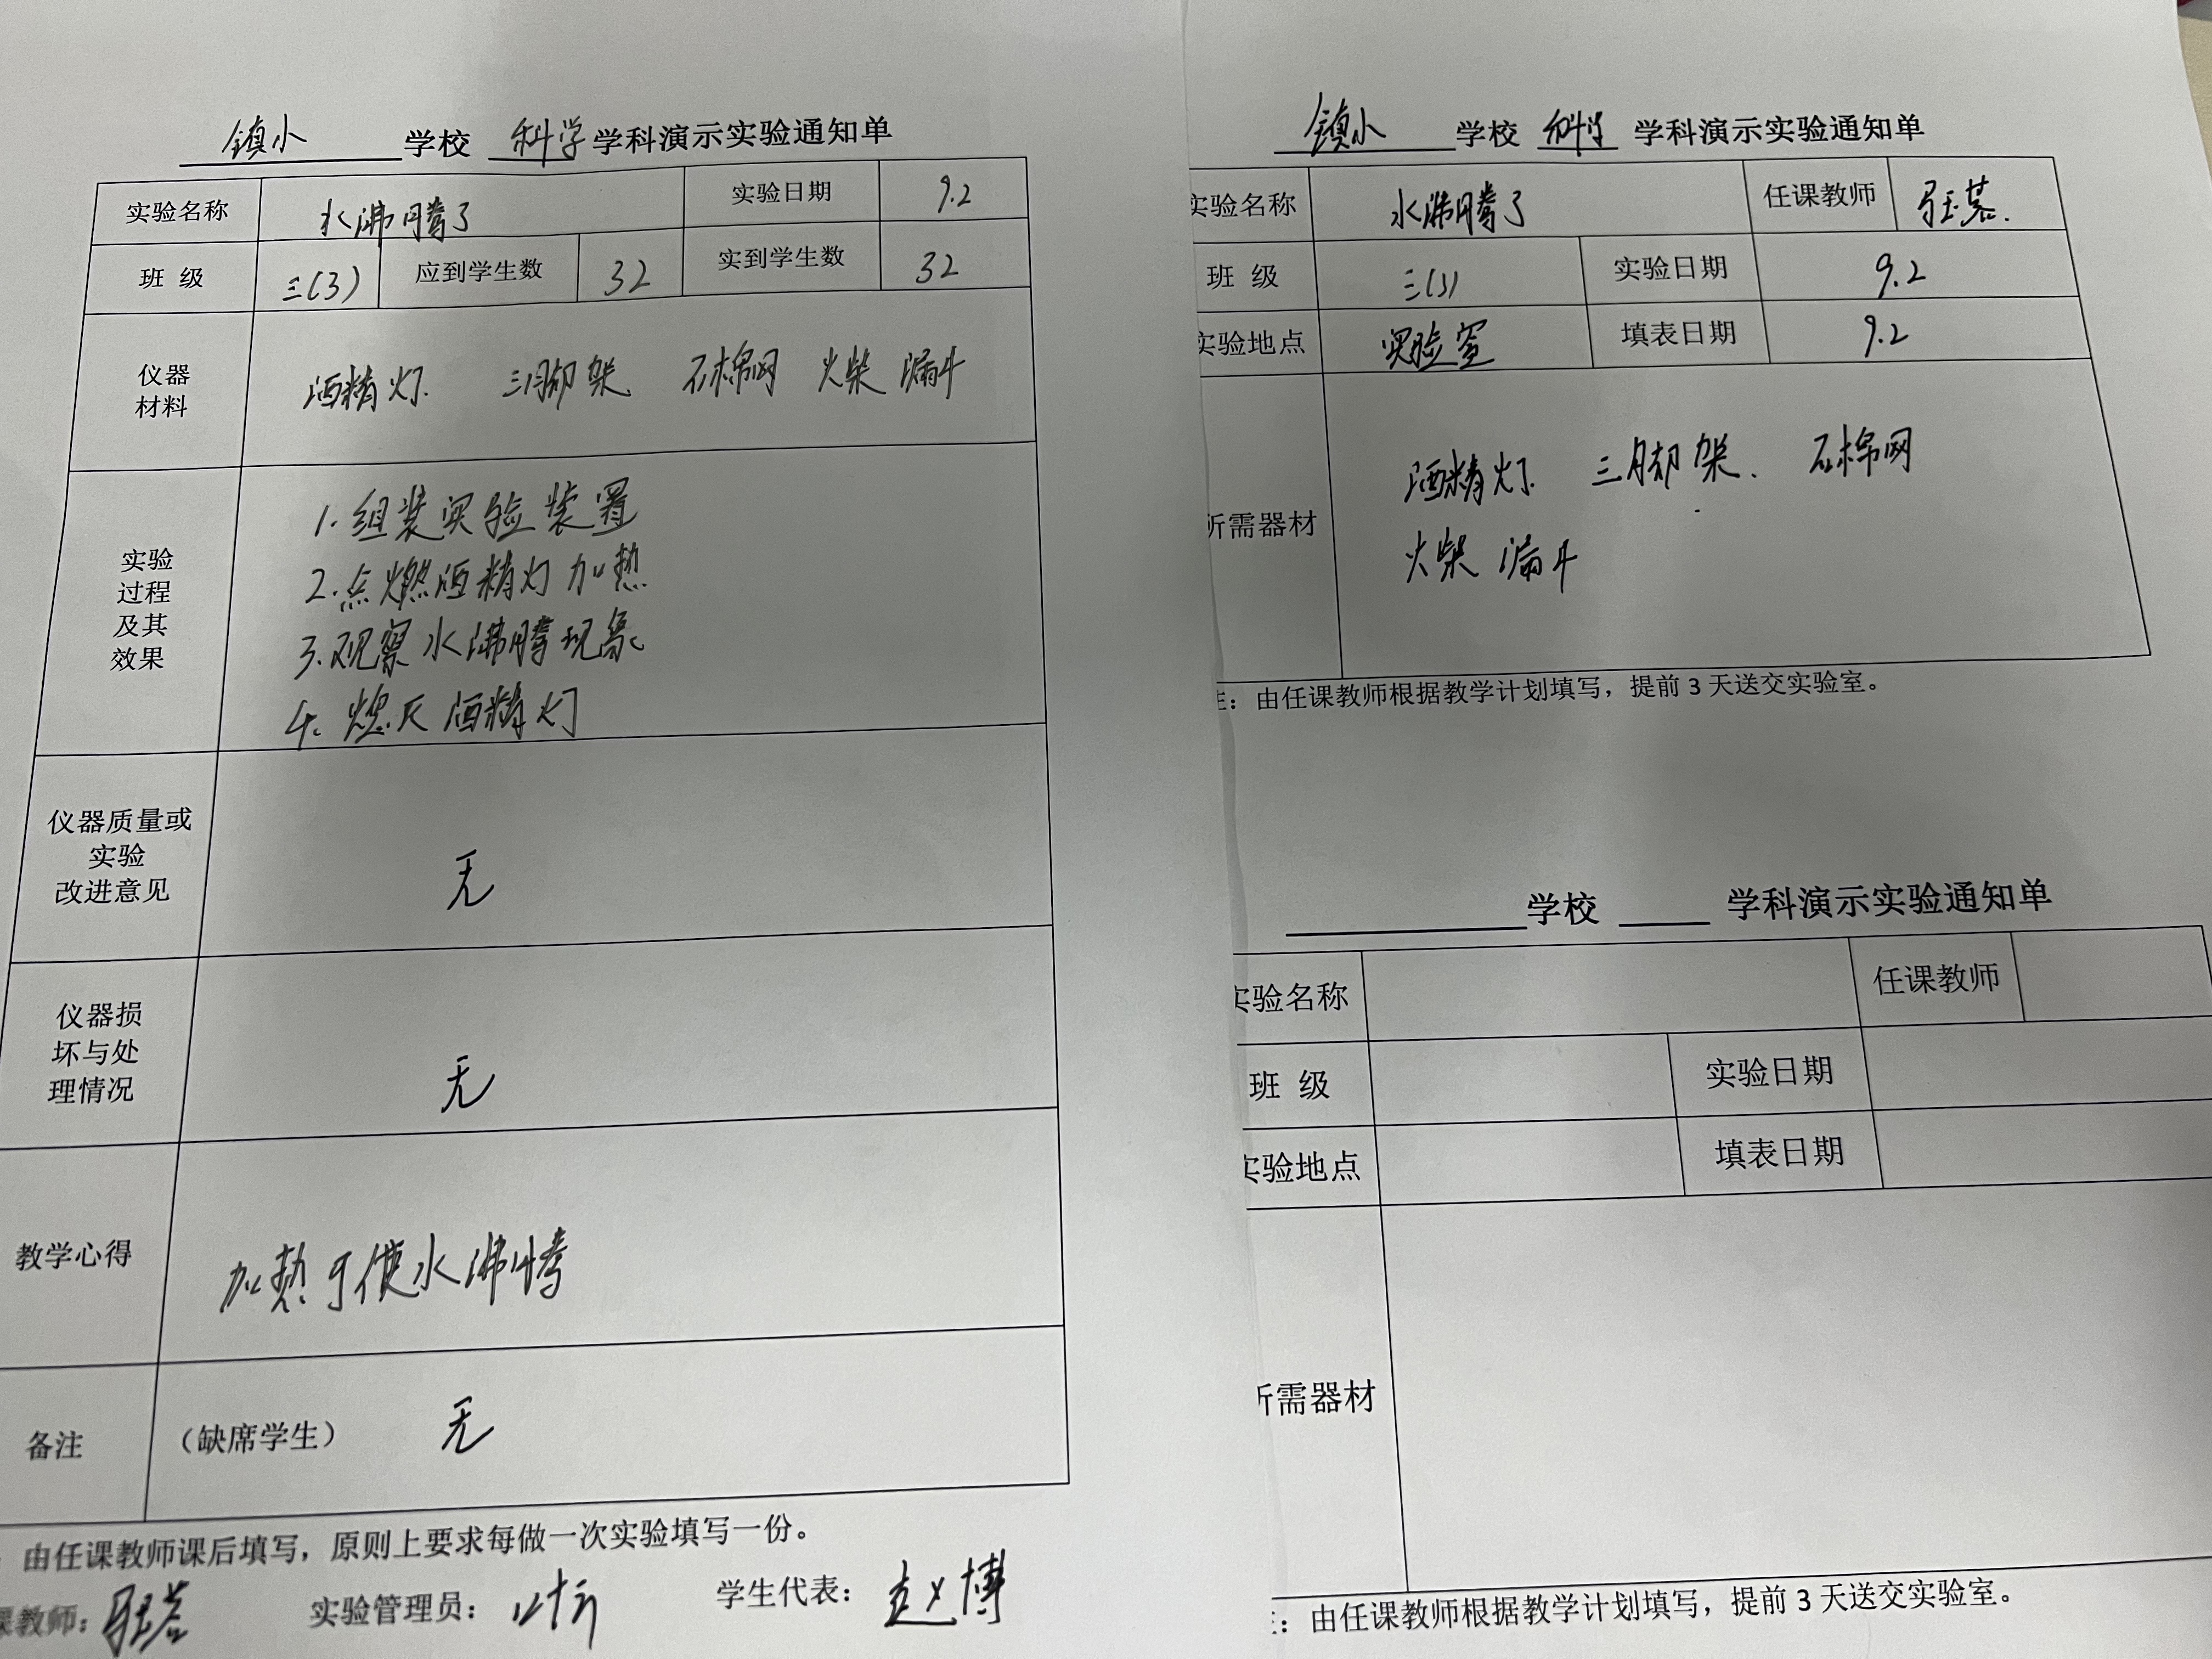 镇小 学校 科学 学科演示实验通知单
实验名称 水沸腾了 实验日期 9.2
班 级 三(3) 应到学生数 32 实到学生数 32
仪器
材料
酒精灯 三脚架 石棉网 火柴 漏斗
实验
过程
及其
效果
1.组装实验装置
2.点燃酒精灯加热
3.观察水沸腾现象
4.熄灭酒精灯
仪器质量或
实验
改进意见
无
仪器损
坏与处
理情况
无
教学心得 加热可使水沸腾
备注 (缺席学生) 无
由任课教师课后填写，原则上要求每做一次实验填写一份。
课教师： 实验管理员： 学生代表：赵博
镇小 学校 科学 学科演示实验通知单
实验名称 水沸腾了 任课教师
班 级 三(3) 实验日期 9.2
实验地点 实验室 填表日期 9.2
所需器材
酒精灯 三脚架. 石棉网
火柴 漏斗
注：由任课教师根据教学计划填写，提前3天送交实验室。
学校 学科演示实验通知单
实验名称 任课教师
班 级 实验日期
实验地点 填表日期
所需器材
：由任课教师根据教学计划填写，提前3天送交实验室。